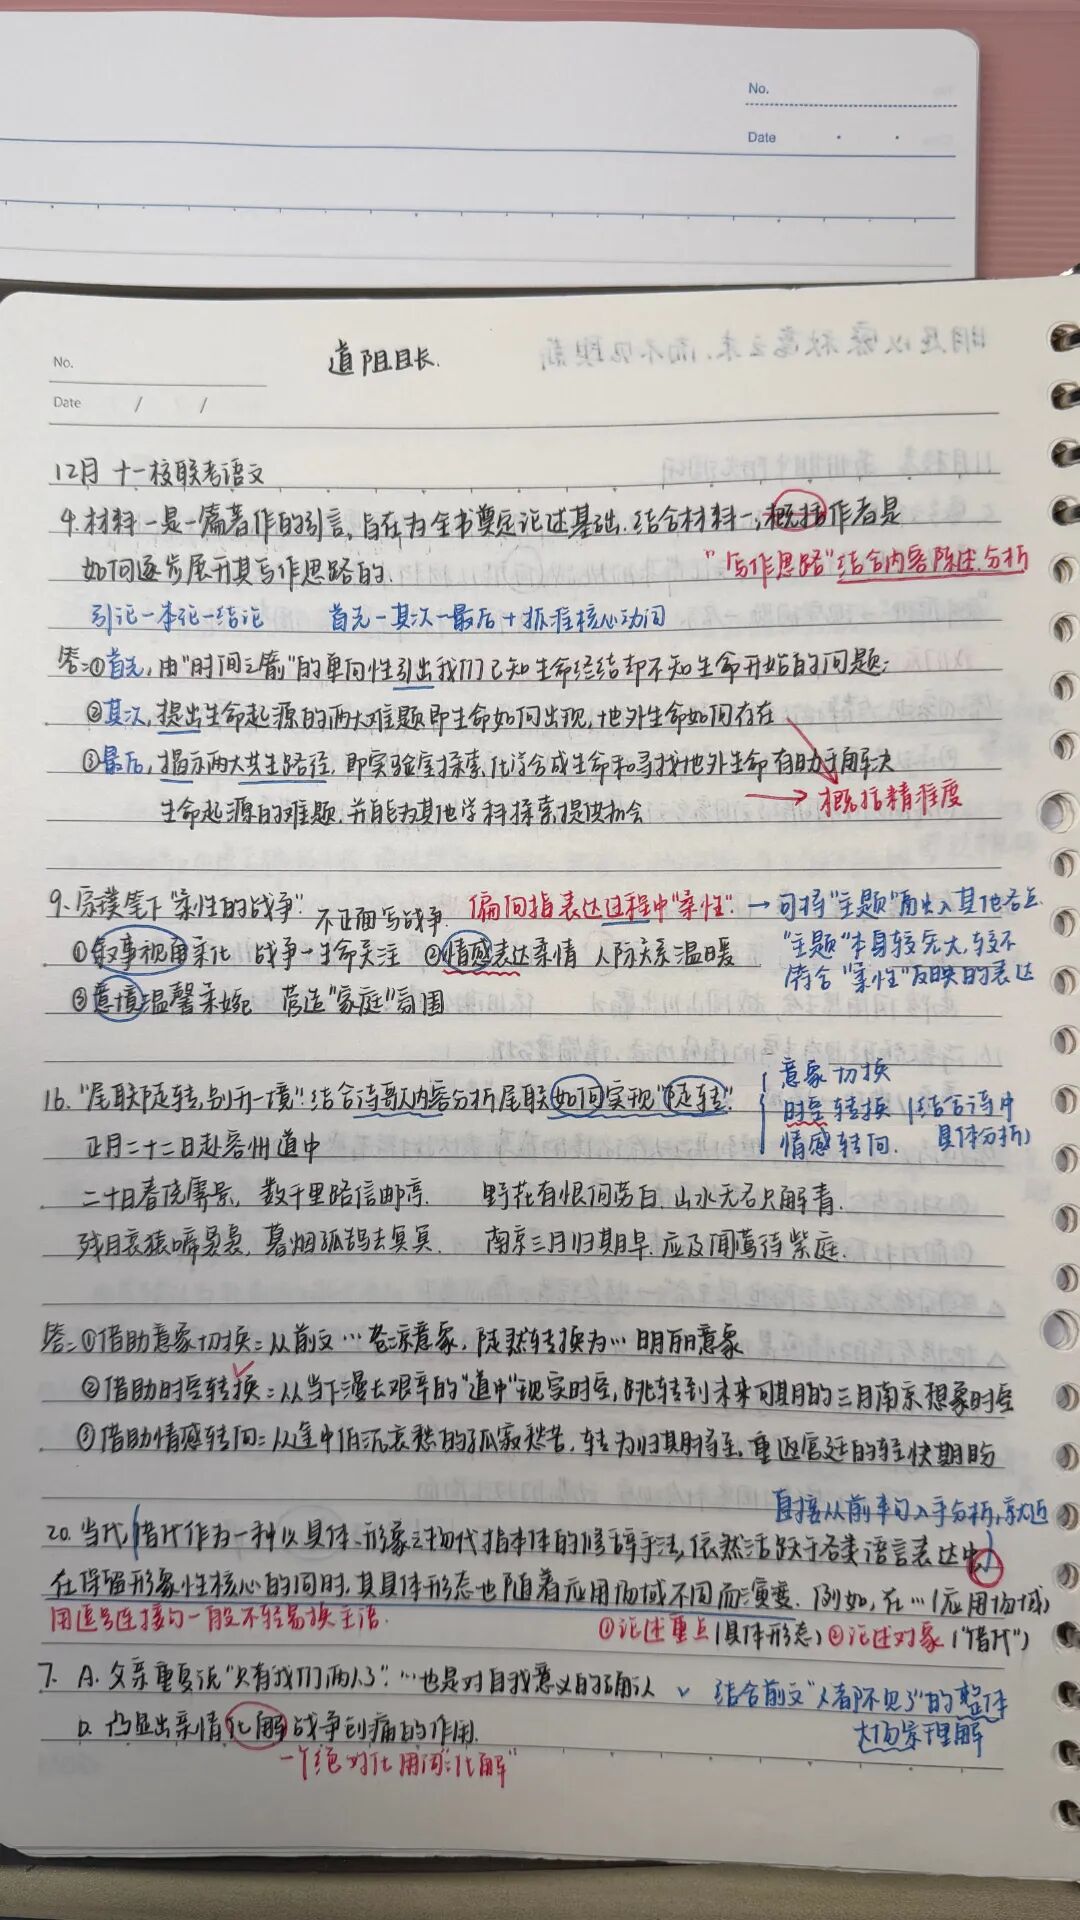 No.
Date
No.
Date / /
道阻且长.
12月 十一校联考语文
4.材料一是一篇著作的引言,旨在为全书奠定论述基础.结合材料一,概括作者是
如何逐步展开其写作思路的.
"写作思路"结合内容陈述.分析
引论一本论一结论 首先一其次一最后+抓准核心动词
答:①首先,由"时间之箭"的单向性引出我们已知生命终结却不知生命开始的问题;
②其次,提出生命起源的两大难题即生命如何出现,地外生命如何存在
③最后,揭示两大共生路径,即实验室探索化学合成生命和寻找地外生命有助于解决
生命起源的难题.并能为其他学科探索提供机会
→概括精准度
9.宗璞笔下"柔性的战争". 不正面写战争.
偏向指表达过程中"柔性".
→可将"主题"融入其他各点
①叙事视角柔化 战争→生命关注 ②情感表达柔情 人际关系温暖
"主题"本身较宏大,较不
符合"柔性"反映的表达
③意境温馨柔婉 营造"家庭"氛围
16."尾联陡转,别开一境":结合诗歌内容分析尾联如何实现"陡转".
意象切换
时空转换(结合诗中
情感转向. 具体分析)
正月二十二日赴容州道中
二十日春侵霁景,数千里路信邮亭. 野花有恨何苦白.山水无名只解青.
残月哀猿啼袅袅,暮烟孤鸹去冥冥. 南京三月归期早.应及闻莺待紫庭.
答:①借助意象切换:从前文…苍凉意象,陡然转换为…明丽意象
②借助时空转换:从当下漫长艰辛的"道中"现实时空,跳转到未来可期的三月南京想象时空
③借助情感转向:从途中低沉哀愁的孤寂愁苦,转为归期将至.重返宫廷的轻快期盼
直接从前半句入手分析,就近
20.当代,借代作为一种以具体、形象之物代指本体的修辞手法,依然活跃于各类语言表达中,
在保留形象性核心的同时,其具体形态也随着应用场域不同而演变. 例如,在…(应用场域)
用逗号连接句一般不轻易换主语.
①论述重点(具体形态)②论述对象("借代")
7. A.父亲重复说"只有我们两人了".…也是对自我意义的确认
结合前文"人都不见了"的整体
大场景理解
D.凸显出亲情化解战争创痛的作用.
一个绝对化用词:"化解"